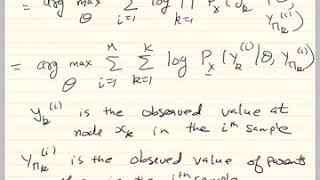 = arg max_Θ Σ_{i=1} log Π_{k=1} P_X (y_k | Θ, y_{π_k}^{(i)})
= arg max_Θ Σ_{i=1}^{M} Σ_{k=1}^{K} log P_X (y_k^{(i)} | Θ, y_{π_k}^{(i)})
y_k^{(i)} is the observed value at
node x_k in the i^{th} sample
y_{π_k}^{(i)} is the observed value of parents
in the i^{th} sample